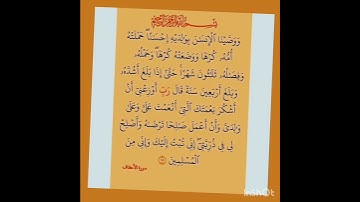 بِسْمِ اللَّهِ الرَّحْمَٰنِ الرَّحِيمِ
وَوَصَّيْنَا الْإِنسَانَ بِوَالِدَيْهِ إِحْسَانًا حَمَلَتْهُ
أُمُّهُ كُرْهًا وَوَضَعَتْهُ كُرْهًا وَحَمْلُهُ
وَفِصَالُهُ ثَلَاثُونَ شَهْرًا حَتَّىٰ إِذَا بَلَغَ أَشُدَّهُ
وَبَلَغَ أَرْبَعِينَ سَنَةً قَالَ رَبِّ أَوْزِعْنِي أَنْ
أَشْكُرَ نِعْمَتَكَ الَّتِي أَنْعَمْتَ عَلَيَّ وَعَلَىٰ
وَالِدَيَّ وَأَنْ أَعْمَلَ صَالِحًا تَرْضَاهُ وَأَصْلِحْ
لِي فِي ذُرِّيَّتِي إِنِّي تُبْتُ إِلَيْكَ وَإِنِّي مِنَ
الْمُسْلِمِينَ
سورة الأحقاف
InShOt